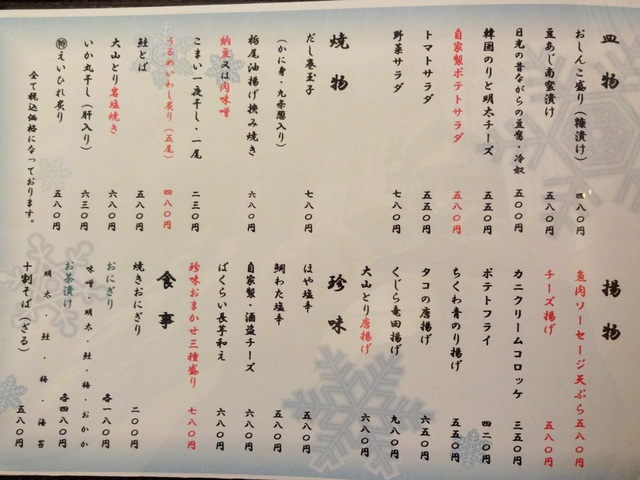 皿物
おしんこ盛り(糠漬け) 四八〇円
豆あじ南蛮漬け 五八〇円
日光の昔ながらの豆腐・冷奴 五〇〇円
韓国のりと明太チーズ 五五〇円
自家製ポテトサラダ 五八〇円
トマトサラダ 五五〇円
野菜サラダ 七八〇円
焼物
だし巻玉子 七八〇円
(かに身・九条葱入り)
栃尾油揚げ挟み焼き 六八〇円
納豆又は肉味噌
こまい一夜干し・一尾 二三〇円
うるめいわし炙り(五尾) 四八〇円
鮭とば 五八〇円
大山とり岩塩焼き 六八〇円
いか丸干し(肝入り) 六三〇円
㊕えいひれ炙り 五八〇円
全て税込価格になっております。
揚物
魚肉ソーセージ天ぷら 五八〇円
チーズ揚げ 五八〇円
カニクリームコロッケ 三五〇円
ポテトフライ 四二〇円
ちくわ青のり揚げ 五五〇円
タコの唐揚げ 六五〇円
くじら竜田揚げ 九八〇円
大山とり唐揚げ 六八〇円
珍味
ほや塩辛 五八〇円
鯛わた塩辛 五八〇円
自家製・酒盗チーズ 六八〇円
ばくらい長芋和え 六八〇円
珍味おまかせ三種盛り 七八〇円
食事
焼きおにぎり 二〇〇円
おにぎり 各一八〇円
味噌・明太・鮭・梅・おかか
お茶漬け 各四八〇円
明太・鮭・梅・海苔
十割そば(ざる) 五八〇円